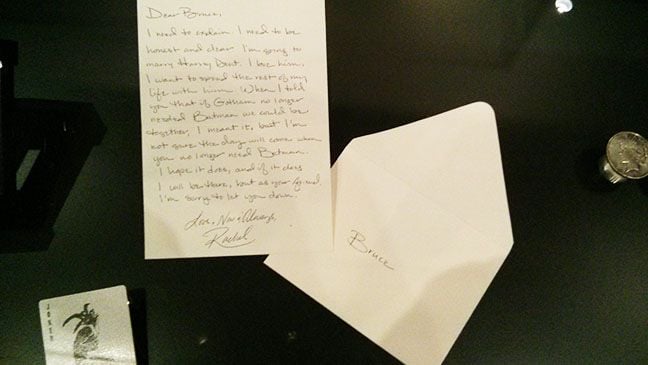 Dear Bruce,
I need to explain. I need to be
honest and clear. I'm going to
marry Harvey Dent. I love him.
I want to spend the rest of my
life with him. When I told
you that if Gotham no longer
needed Batman we could be
together, I meant it, but I'm
not sure the day will come when
you no longer need Batman.
I hope it does, and if it does
I will be there, but as your friend.
I'm sorry to let you down.
Love, Now & Always,
Rachel
Bruce
JOKER